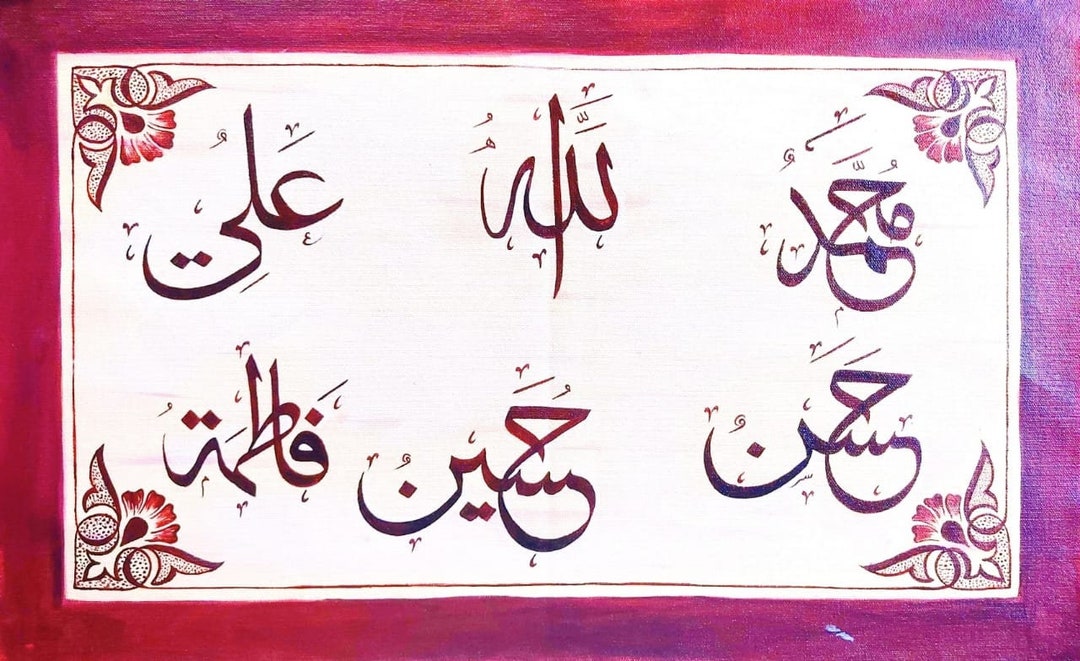 مُحَمَّدٌ اللّٰهُ عَلِيٌ
حَسَنٌ حُسَينٌ فَاطِمَةُ